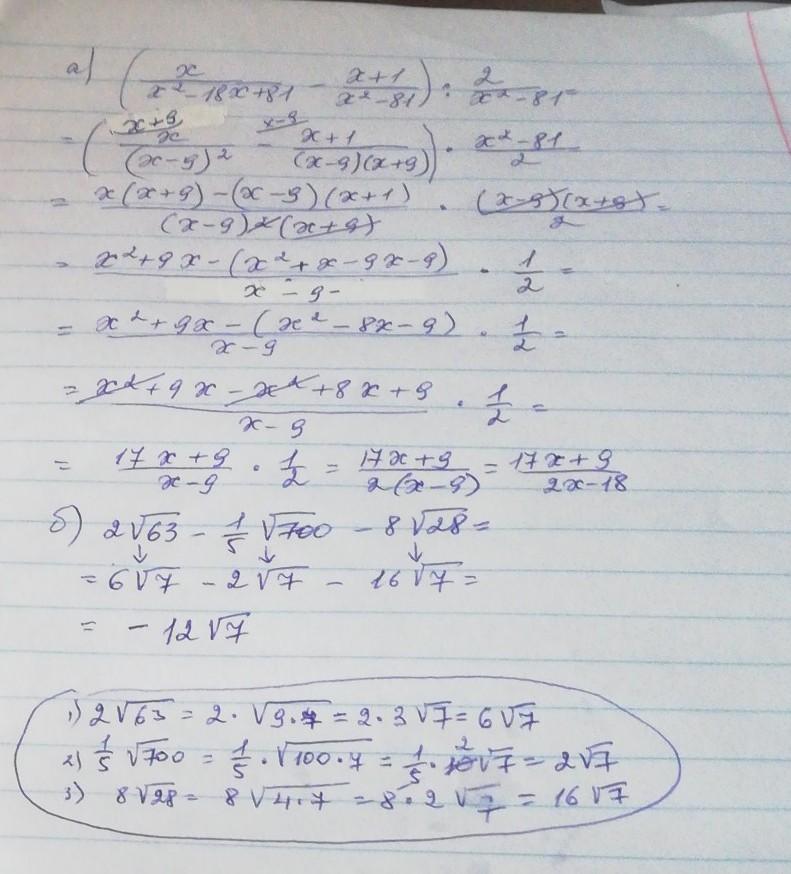 а) (x/(x²-18x+81) - (x+1)/(x²-81)) : 2/(x²-81) =
= (ˣ⁺⁹⁄ x/(x-9)² - ˣ⁻⁹⁄ (x+1)/((x-9)(x+9))) · (x²-81)/2 =
= (x(x+9)-(x-9)(x+1))/((x-9)²(x+9)) · ((x-9)(x+9))/2 =
= (x²+9x-(x²+x-9x-9))/(x-9) · 1/2 =
= (x²+9x-(x²-8x-9))/(x-9) · 1/2 =
= (x²+9x-x²+8x+9)/(x-9) · 1/2 =
= (17x+9)/(x-9) · 1/2 = (17x+9)/(2(x-9)) = (17x+9)/(2x-18)
б) 2√63 - 1/5 √700 - 8√28 =
= 6√7 - 2√7 - 16√7 =
= -12√7
1) 2√63 = 2·√9·7 = 2·3√7 = 6√7
2) 1/5 √700 = 1/5 ·√100·7 = 1/5 · 10 2 √7 = 2√7
3) 8√28 = 8√4·7 = 8·2√7 = 16√7